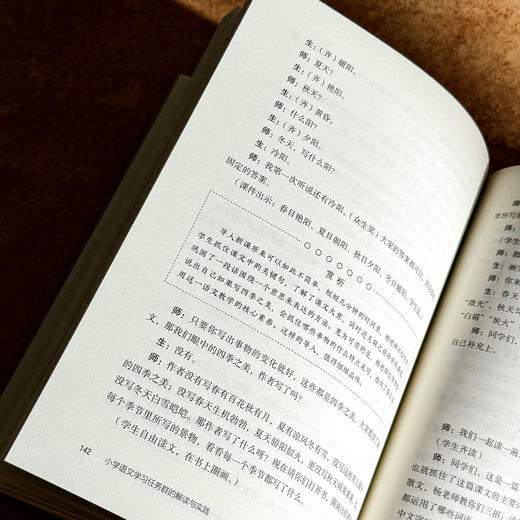 生：（齐）暖阳。
师：夏天？
生：（齐）艳阳。
师：秋天？
生：（齐）黄昏。
师：什么阳？
生：（齐）夕阳。
师：冬天，写什么阳？
生：冷阳。
师：我第一次听说还有冷阳。（众生笑）大家的答案都对，
固定的答案。
（课件出示：春日艳阳，夏日朝阳，秋日夕阳，冬日暖阳。学生读）
赏析
导入新课原来可以如此不简单。短短几分钟的时间里，
学生抓住课文中的关键句，了解了课文大意，
巩固了一段话围绕一个意思来表达的方法。更为可贵的是，
说出自己如果写四季之美，会抓住哪些事物的什么特点来写，
用这一语文教学的核心素养。这样的导入，值得细细品味。
师：只要你写出事物的变化就好，这些都是四季之美，
文，那我们眼中的四季之美，作者写了吗？
生：没有。
师：作者没有写春有百花秋有月，夏有凉风冬有雪，
的四季之美；没写春天生机勃勃，夏天骄阳似火，
没写冬天白雪皑皑。那作者写了什么呀？现在请你们打开书，
每个季节里所写的景物，看看每个季节都写了什么。
（学生自由读文，在书上圈画。）
142 小学语文学习任务群的解读与实践
里所写的
师：
（学生
师：
生：画
师：你来
生：春天
“微光”，秋天
“白霜”“炭火”
师：同学们，
自己补充上。
师：我们一起读一遍
（学生齐读）
师：同学们，这是一篇
也就抓住了这篇课文的主要
散文，杨老师教你们三招：
都运用了哪些词语
中文字